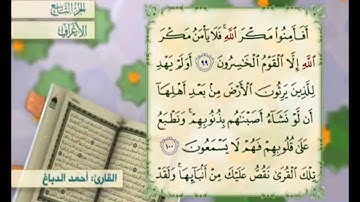 الجزء التاسع
الأعراف
أَفَأَمِنُوا۟ مَكْرَ ٱللَّهِ فَلَا يَأْمَنُ مَكْرَ
ٱللَّهِ إِلَّا ٱلْقَوْمُ ٱلْخَٰسِرُونَ ٩٩ أَوَلَمْ يَهْدِ
لِلَّذِينَ يَرِثُونَ ٱلْأَرْضَ مِنۢ بَعْدِ أَهْلِهَآ
أَن لَّوْ نَشَآءُ أَصَبْنَٰهُم بِذُنُوبِهِمْ ۚ وَنَطْبَعُ
عَلَىٰ قُلُوبِهِمْ فَهُمْ لَا يَسْمَعُونَ ١٠٠
تِلْكَ ٱلْقُرَىٰ نَقُصُّ عَلَيْكَ مِنْ أَنۢبَآئِهَا ۚ وَلَقَدْ
القارئ: أحمد الدباغ